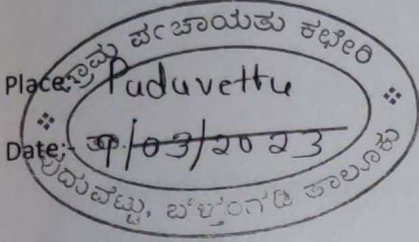 ಗ್ರಾಮ ಪಂಚಾಯತು ಕಛೇರಿ
Place:- Puduvettu
Date:- 9/03/2023
ಪುದುವೆಟ್ಟು, ಬೆಳ್ತಂಗಡಿ ತಾಲೂಕು